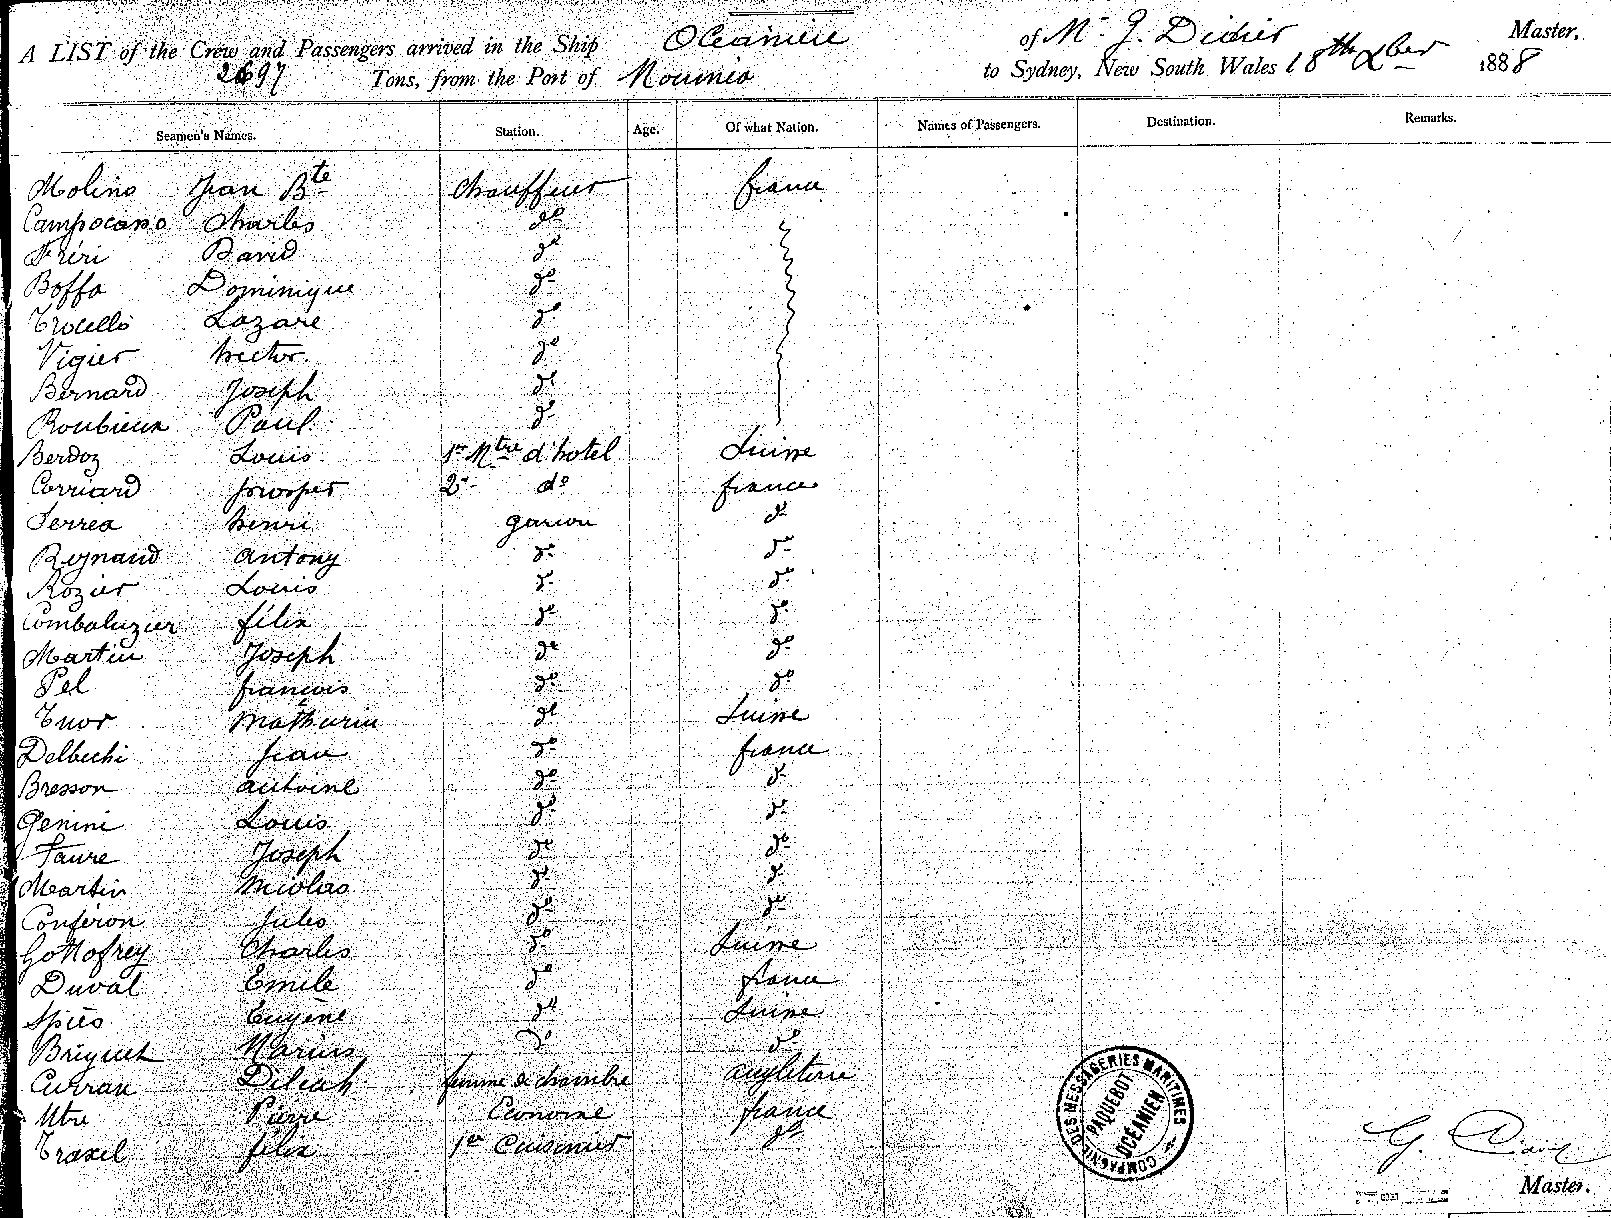 A LIST of the Crew and Passengers arrived in the Ship Océanien of Mr G. Didier Master,
2697 Tons, from the Port of Nouméa to Sydney, New South Wales 18th Xber 1888
Seamen's Names. Station. Age. Of what Nation. Names of Passengers. Destination. Remarks.
Molino Jean Bte Chauffeur france
Campocasso Charles do
Fréri David do
Boffa Dominique do
Trocello Lazare do
Vigier hector do
Bernard Joseph do
Roubieux Paul do
Berdoz Louis 1er Mtre d'hotel Suisse
Corriard prosper 2e do france
Serrea henri garcon do
Reynaud antony do do
Rozier Louis do do
Combaluzier félix do do
Martin Joseph do do
Pel francois do do
Tuor Mathurin do Suisse
Delbechi Jean do france
Bresson antoine do do
Genini Louis do do
Faure Joseph do do
Martin Nicolas do do
Conféron Jules do do
Gottofrey Charles do Suisse
Duval Emile do france
Spiès Eugène do Suisse
Briquet Marius do do
Curran Dileah femme de chambre angleterre
Utre Pierre Econome france
Traxel félix 1er Cuisinier do
COMPAGNIE DES MESSAGERIES MARITIMES
PAQUEBOT
OCÉANIEN
Master.